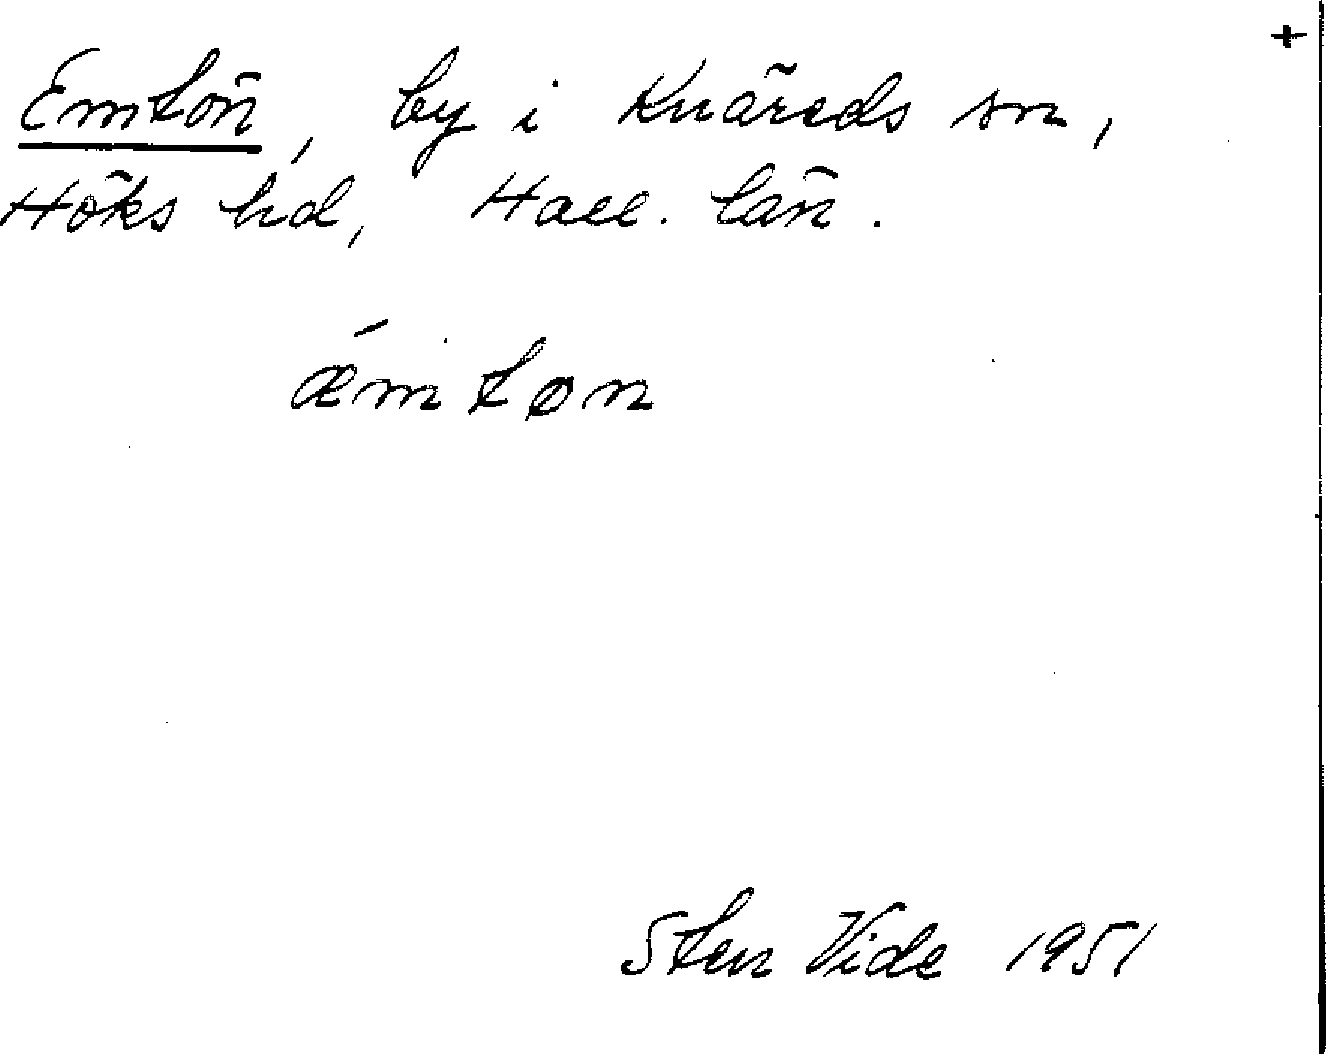 +
Emtön, by i Knäreds sn,
Höks hd, Hall. län.
ǽmtøn
Sten Vide 1951